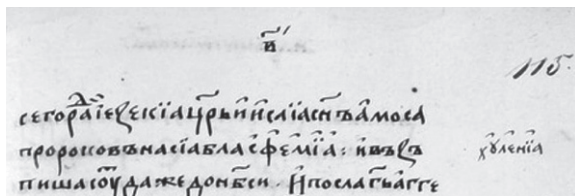 и҃
115.
сегора́ᲁиіезекїа цр҃ьи҆и҆саїасн҃ъа҆моса
пророковънасїабласфемїа: ивъзъ
хꙋленїа
пишасѻꙋдаждедонб҃си. И҆послагь҃агге